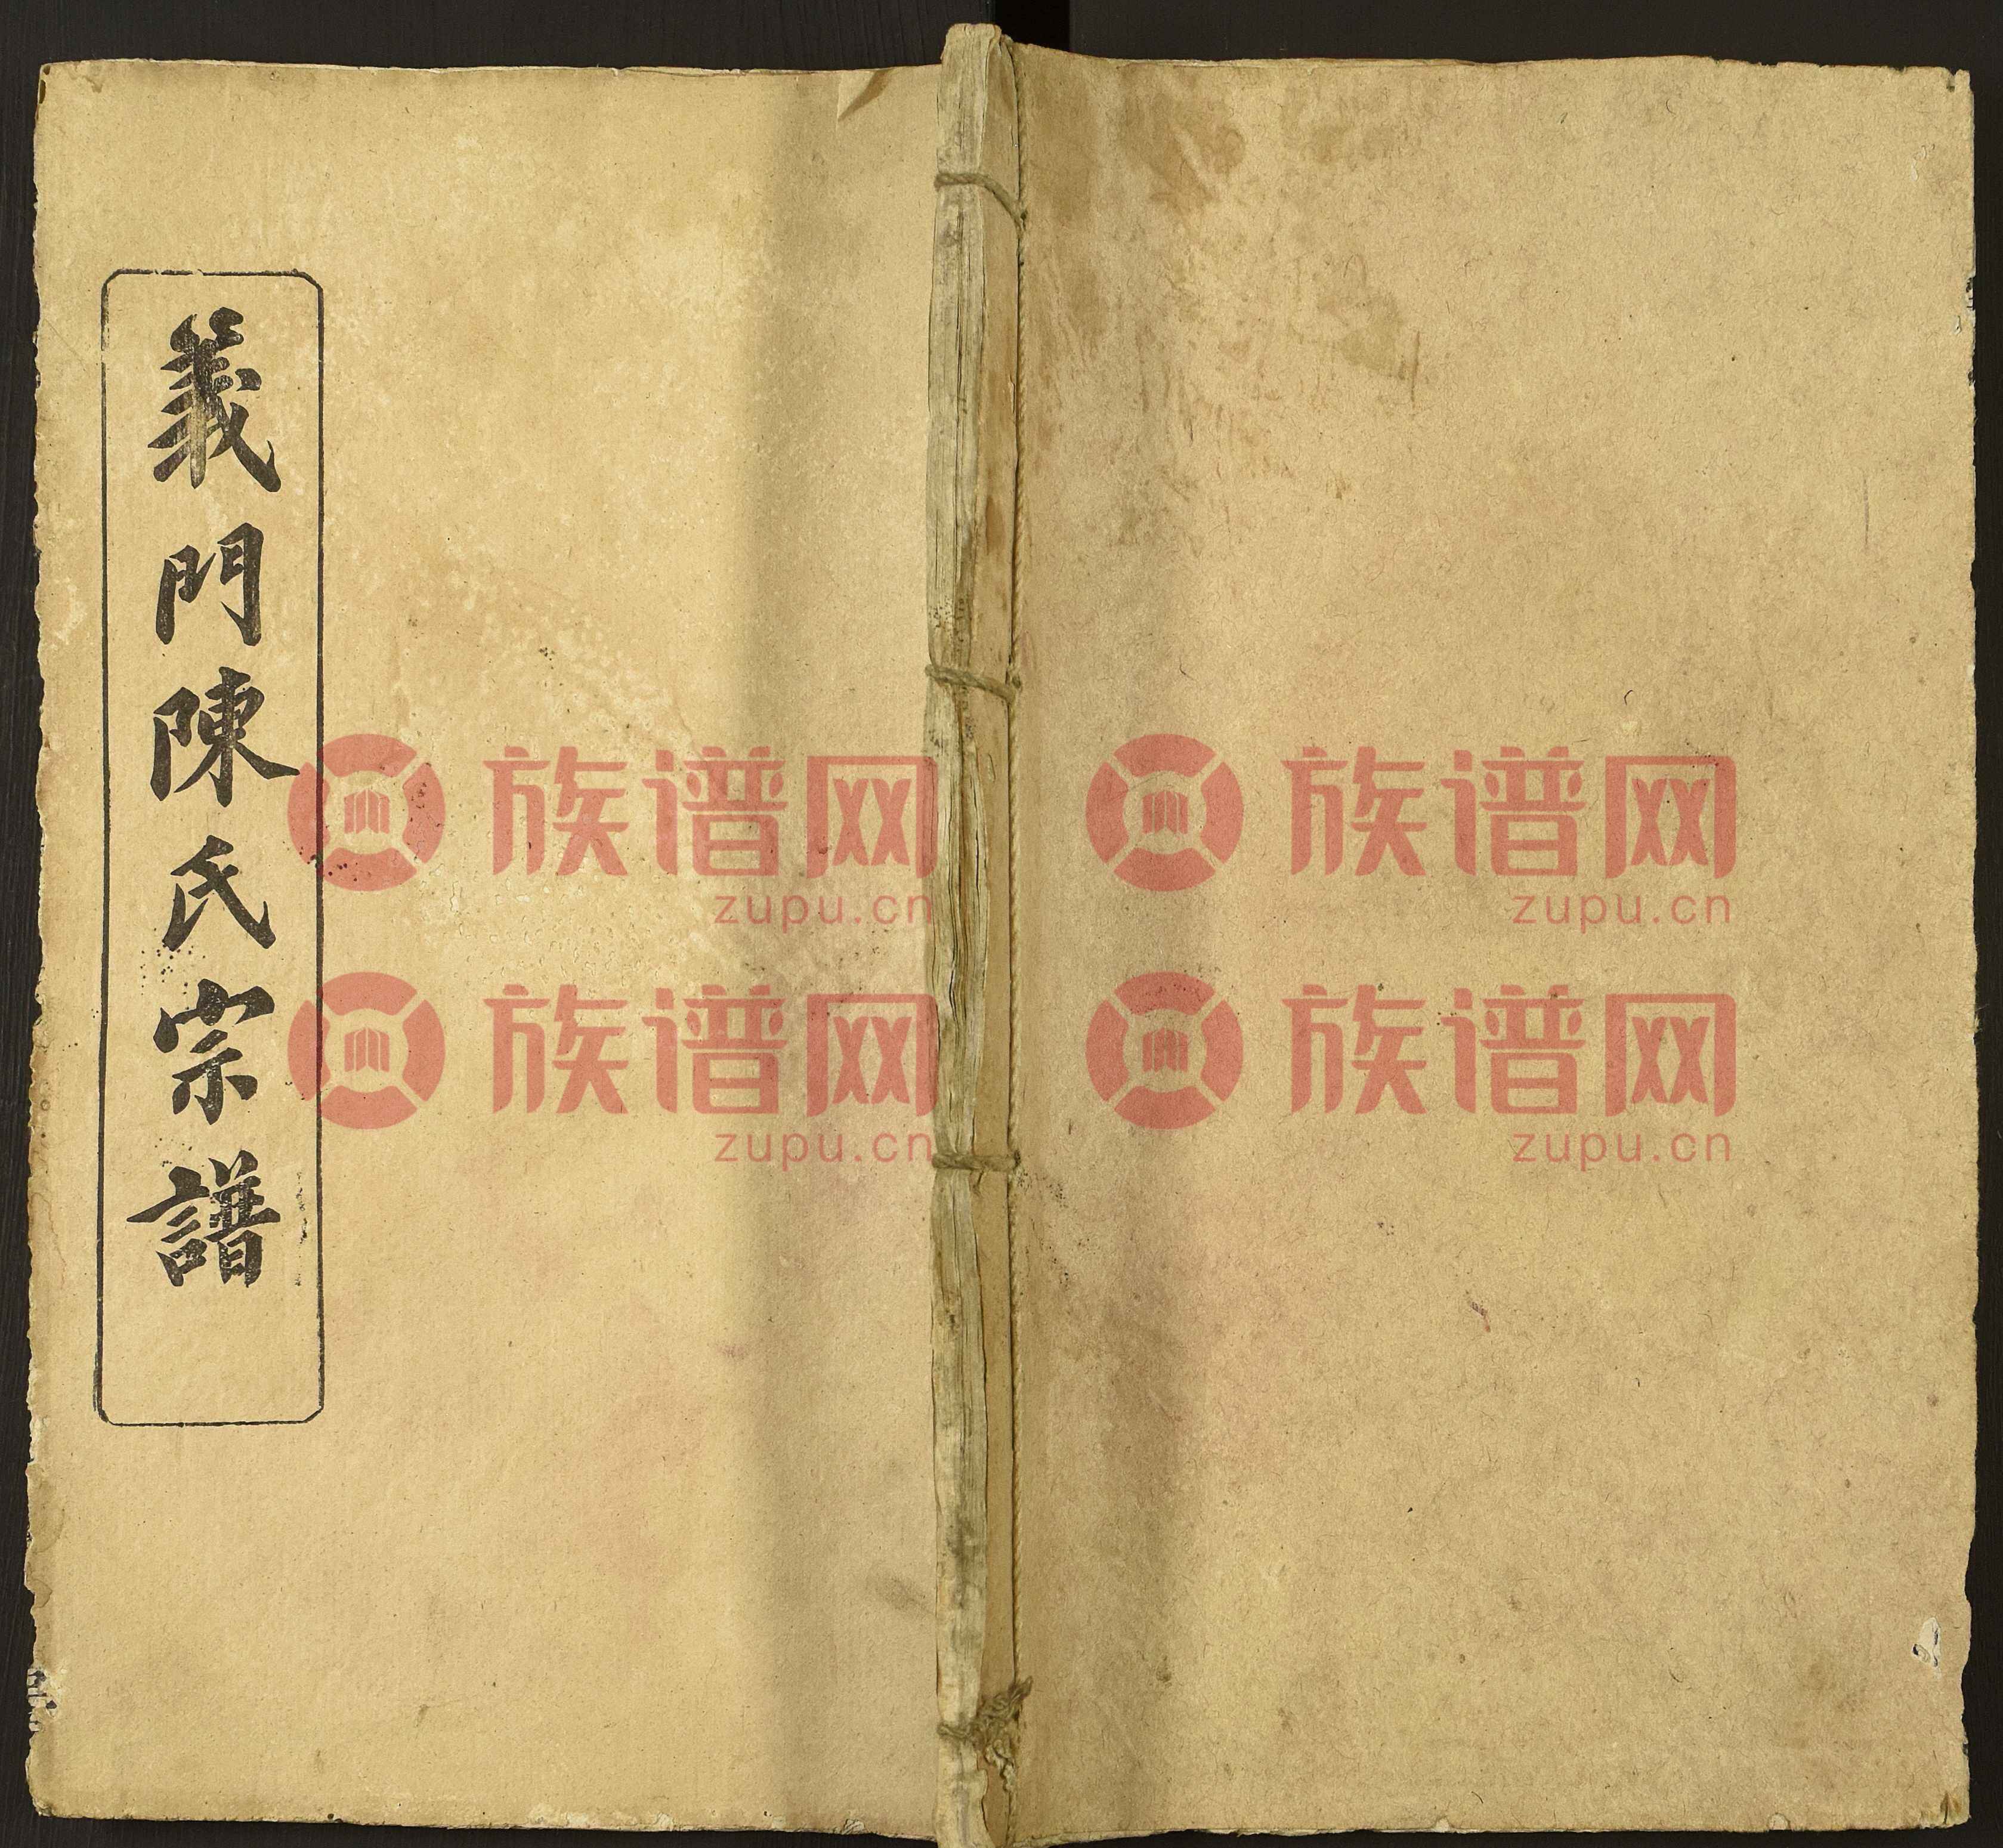 義門陳氏宗譜
族谱网
zupu.cn
族谱网
zupu.cn
族谱网
zupu.cn
族谱网
zupu.cn